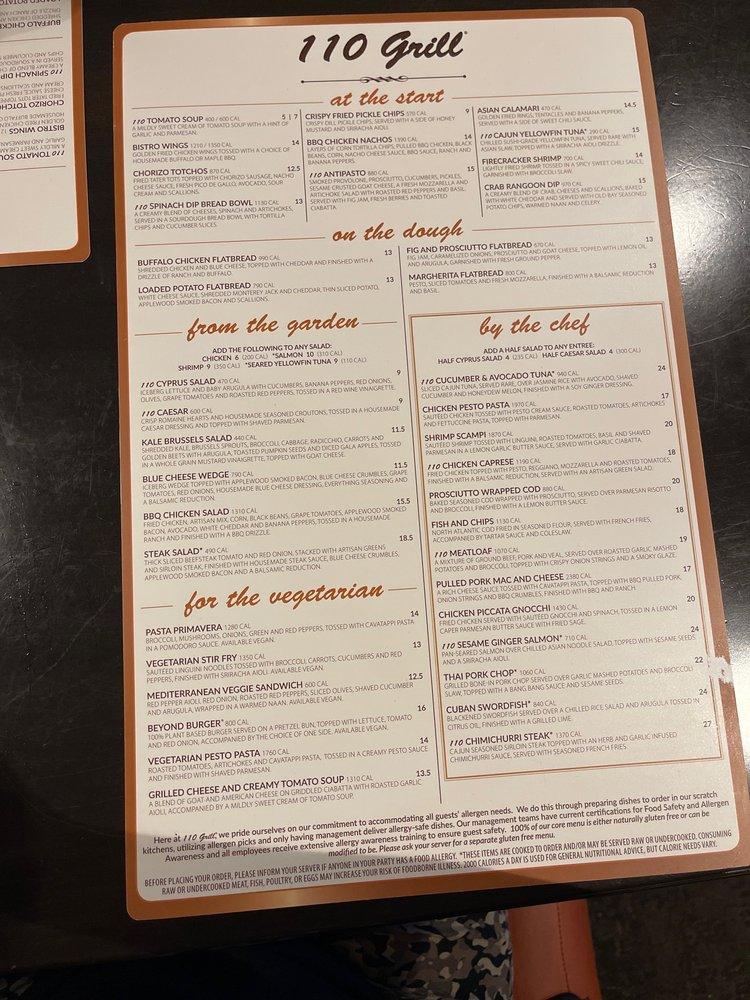 110 Grill
at the start
110 TOMATO SOUP 400 / 600 CAL 5 | 7
A MILDLY SWEET CREAM OF TOMATO SOUP WITH A HINT OF
GARLIC AND PARMESAN.
BISTRO WINGS 1210 / 1350 CAL 14
GOLDEN FRIED CHICKEN WINGS TOSSED WITH A CHOICE OF
HOUSEMADE BUFFALO OR MAPLE BBQ.
CHORIZO TOTCHOS 870 CAL 12.5
FRIED TATER TOTS TOPPED WITH CHORIZO SAUSAGE, NACHO
CHEESE SAUCE, FRESH PICO DE GALLO, AVOCADO, SOUR
CREAM AND SCALLIONS.
110 SPINACH DIP BREAD BOWL 1130 CAL 13
A CREAMY BLEND OF CHEESES, SPINACH AND ARTICHOKES,
SERVED IN A SOURDOUGH BREAD BOWL WITH TORTILLA
CHIPS AND CUCUMBER SLICES.
CRISPY FRIED PICKLE CHIPS 570 CAL 9
CRISPY DILL PICKLE CHIPS, SERVED WITH A SIDE OF HONEY
MUSTARD AND SRIRACHA AIOLI.
BBQ CHICKEN NACHOS 1390 CAL 14
LAYERS OF CORN TORTILLA CHIPS, PULLED BBQ CHICKEN, BLACK
BEANS, CORN, NACHO CHEESE SAUCE, BBQ SAUCE, RANCH AND
BANANA PEPPERS.
110 ANTIPASTO 880 CAL 15
SMOKED PROVOLONE, PROSCIUTTO, CUCUMBERS, PICKLES,
SESAME CRUSTED GOAT CHEESE, A FRESH MOZZARELLA AND
ARTICHOKE SALAD WITH ROASTED RED PEPPERS AND BASIL.
SERVED WITH FIG JAM, FRESH BERRIES AND TOASTED
CIABATTA.
ASIAN CALAMARI 470 CAL 14.5
GOLDEN FRIED RINGS, TENTACLES AND BANANA PEPPERS,
SERVED WITH A SIDE OF SWEET CHILI SAUCE.
110 CAJUN YELLOWFIN TUNA* 290 CAL 15
CHILLED SUSHI-GRADE YELLOWFIN TUNA, SERVED RARE WITH
ASIAN SLAW, TOPPED WITH A SRIRACHA AIOLI DRIZZLE.
FIRECRACKER SHRIMP 700 CAL 14
LIGHTLY FRIED SHRIMP TOSSED IN A SPICY SWEET CHILI SAUCE,
GARNISHED WITH BROCCOLI SLAW.
CRAB RANGOON DIP 970 CAL 15
A CREAMY BLEND OF CRAB, CHEESES AND SCALLIONS, BAKED
WITH WHITE CHEDDAR AND SERVED WITH OLD BAY SEASONED
POTATO CHIPS, WARMED NAAN AND CELERY.
on the dough
BUFFALO CHICKEN FLATBREAD 990 CAL 13
SHREDDED CHICKEN AND BLUE CHEESE, TOPPED WITH CHEDDAR AND FINISHED WITH A
DRIZZLE OF RANCH AND BUFFALO.
LOADED POTATO FLATBREAD 790 CAL 13
WHITE CHEESE SAUCE, SHREDDED MONTEREY JACK AND CHEDDAR, THIN SLICED POTATO,
APPLEWOOD SMOKED BACON AND SCALLIONS.
FIG AND PROSCIUTTO FLATBREAD 670 CAL 13
FIG JAM, CARAMELIZED ONIONS, PROSCIUTTO AND GOAT CHEESE, TOPPED WITH LEMON OIL
AND ARUGULA, GARNISHED WITH FRESH GROUND PEPPER.
MARGHERITA FLATBREAD 800 CAL 13
PESTO, SLICED TOMATOES AND FRESH MOZZARELLA, FINISHED WITH A BALSAMIC REDUCTION
AND BASIL.
from the garden
ADD THE FOLLOWING TO ANY SALAD:
CHICKEN 6 (200 CAL) *SALMON 10 (310 CAL)
SHRIMP 9 (350 CAL) *SEARED YELLOWFIN TUNA 9 (110 CAL)
110 CYPRUS SALAD 470 CAL 9
ICEBERG LETTUCE AND BABY ARUGULA WITH CUCUMBERS, BANANA PEPPERS, RED ONIONS,
OLIVES, GRAPE TOMATOES AND ROASTED RED PEPPERS, TOSSED IN A RED WINE VINAIGRETTE.
110 CAESAR 600 CAL 9
CRISP ROMAINE HEARTS AND HOUSEMADE SEASONED CROUTONS, TOSSED IN A HOUSEMADE
CAESAR DRESSING AND TOPPED WITH SHAVED PARMESAN.
KALE BRUSSELS SALAD 440 CAL 11.5
SHREDDED KALE, BRUSSELS SPROUTS, BROCCOLI, CABBAGE, RADICCHIO, CARROTS AND
GOLDEN BEETS WITH ARUGULA, TOASTED PUMPKIN SEEDS AND DICED GALA APPLES, TOSSED
IN A WHOLE GRAIN MUSTARD VINAIGRETTE, TOPPED WITH GOAT CHEESE.
BLUE CHEESE WEDGE 790 CAL 11.5
ICEBERG WEDGE TOPPED WITH APPLEWOOD SMOKED BACON, BLUE CHEESE CRUMBLES, GRAPE
TOMATOES, RED ONIONS, HOUSEMADE BLUE CHEESE DRESSING, EVERYTHING SEASONING AND
A BALSAMIC REDUCTION.
BBQ CHICKEN SALAD 1310 CAL 15.5
FRIED CHICKEN, ARTISAN MIX, CORN, BLACK BEANS, GRAPE TOMATOES, APPLEWOOD SMOKED
BACON, AVOCADO, WHITE CHEDDAR AND BANANA PEPPERS, TOSSED IN A HOUSEMADE
RANCH AND FINISHED WITH A BBQ DRIZZLE.
STEAK SALAD* 490 CAL 18.5
THICK SLICED BEEFSTEAK TOMATO AND RED ONION, STACKED WITH ARTISAN GREENS
AND SIRLOIN STEAK, FINISHED WITH HOUSEMADE STEAK SAUCE, BLUE CHEESE CRUMBLES,
APPLEWOOD SMOKED BACON AND A BALSAMIC REDUCTION.
for the vegetarian
PASTA PRIMAVERA 1280 CAL 14
BROCCOLI, MUSHROOMS, ONIONS, GREEN AND RED PEPPERS, TOSSED WITH CAVATAPPI PASTA
IN A POMODORO SAUCE. AVAILABLE VEGAN.
VEGETARIAN STIR FRY 1350 CAL 13
SAUTÉED LINGUINI NOODLES TOSSED WITH BROCCOLI, CARROTS, CUCUMBERS AND RED
PEPPERS, FINISHED WITH SRIRACHA AIOLI. AVAILABLE VEGAN.
MEDITERRANEAN VEGGIE SANDWICH 600 CAL 12.5
RED PEPPER AIOLI, RED ONION, ROASTED RED PEPPERS, SLICED OLIVES, SHAVED CUCUMBER
AND ARUGULA, WRAPPED IN A WARMED NAAN. AVAILABLE VEGAN.
BEYOND BURGER® 800 CAL 16
100% PLANT BASED BURGER SERVED ON A PRETZEL BUN, TOPPED WITH LETTUCE, TOMATO
AND RED ONION, ACCOMPANIED BY THE CHOICE OF ONE SIDE. AVAILABLE VEGAN.
VEGETARIAN PESTO PASTA 1760 CAL 14
ROASTED TOMATOES, ARTICHOKES AND CAVATAPPI PASTA, TOSSED IN A CREAMY PESTO SAUCE
AND FINISHED WITH SHAVED PARMESAN.
GRILLED CHEESE AND CREAMY TOMATO SOUP 1310 CAL 13.5
A BLEND OF GOAT AND AMERICAN CHEESE ON GRIDDLED CIABATTA WITH ROASTED GARLIC
AIOLI, ACCOMPANIED BY A MILDLY SWEET CREAM OF TOMATO SOUP.
by the chef
ADD A HALF SALAD TO ANY ENTREE:
HALF CYPRUS SALAD 4 (235 CAL) HALF CAESAR SALAD 4 (300 CAL)
110 CUCUMBER & AVOCADO TUNA* 940 CAL 24
SLICED CAJUN TUNA, SERVED RARE, OVER JASMINE RICE WITH AVOCADO, SHAVED
CUCUMBER AND HONEYDEW MELON, FINISHED WITH A SOY GINGER DRESSING.
CHICKEN PESTO PASTA 1970 CAL 17
SAUTÉED CHICKEN TOSSED WITH PESTO CREAM SAUCE, ROASTED TOMATOES, ARTICHOKES
AND FETTUCCINE PASTA, TOPPED WITH PARMESAN.
SHRIMP SCAMPI 1870 CAL 20
SAUTÉED SHRIMP TOSSED WITH LINGUINI, ROASTED TOMATOES, BASIL AND SHAVED
PARMESAN IN A LEMON GARLIC BUTTER SAUCE, SERVED WITH GARLIC CIABATTA.
110 CHICKEN CAPRESE 1190 CAL 18
FRIED CHICKEN TOPPED WITH PESTO, REGGIANO, MOZZARELLA AND ROASTED TOMATOES,
FINISHED WITH A BALSAMIC REDUCTION, SERVED WITH AN ARTISAN GREEN SALAD.
PROSCIUTTO WRAPPED COD 880 CAL 20
BAKED SEASONED COD WRAPPED WITH PROSCIUTTO, SERVED OVER PARMESAN RISOTTO
AND BROCCOLI, FINISHED WITH A LEMON BUTTER SAUCE.
FISH AND CHIPS 1130 CAL 18
NORTH ATLANTIC COD FRIED IN SEASONED FLOUR, SERVED WITH FRENCH FRIES,
ACCOMPANIED BY TARTAR SAUCE AND COLESLAW.
110 MEATLOAF 1070 CAL 19
A MIXTURE OF GROUND BEEF, PORK AND VEAL, SERVED OVER ROASTED GARLIC MASHED
POTATOES AND BROCCOLI, TOPPED WITH CRISPY ONION STRINGS AND A SMOKY GLAZE.
PULLED PORK MAC AND CHEESE 2380 CAL 17
A RICH CHEESE SAUCE TOSSED WITH CAVATAPPI PASTA, TOPPED WITH BBQ PULLED PORK,
ONION STRINGS AND BBQ CRUMBLES, FINISHED WITH BBQ AND RANCH.
CHICKEN PICCATA GNOCCHI 1430 CAL 20
FRIED CHICKEN SERVED WITH SAUTÉED GNOCCHI AND SPINACH, TOSSED IN A LEMON
CAPER PARMESAN BUTTER SAUCE WITH FRIED SAGE.
110 SESAME GINGER SALMON* 710 CAL 24
PAN-SEARED SALMON OVER CHILLED ASIAN NOODLE SALAD, TOPPED WITH SESAME SEEDS
AND A SRIRACHA AIOLI.
THAI PORK CHOP* 1060 CAL 22
GRILLED BONE-IN PORK CHOP SERVED OVER GARLIC MASHED POTATOES AND BROCCOLI
SLAW, TOPPED WITH A BANG BANG SAUCE AND SESAME SEEDS.
CUBAN SWORDFISH* 840 CAL 24
BLACKENED SWORDFISH SERVED OVER A CHILLED RICE SALAD AND ARUGULA TOSSED IN
CITRUS OIL, FINISHED WITH A GRILLED LIME.
110 CHIMICHURRI STEAK* 1370 CAL 27
CAJUN SEASONED SIRLOIN STEAK TOPPED WITH AN HERB AND GARLIC INFUSED
CHIMICHURRI SAUCE, SERVED WITH SEASONED FRENCH FRIES.
Here at 110 Grill, we pride ourselves on our commitment to accommodating all guests' allergen needs. We do this through preparing dishes to order in our scratch
kitchens, utilizing allergen picks and only having management deliver allergy-safe dishes. Our management teams have current certifications for Food Safety and Allergen
Awareness and all employees receive extensive allergy awareness training to ensure guest safety. 100% of our core menu is either naturally gluten free or can be
modified to be. Please ask your server for a separate gluten free menu.
BEFORE PLACING YOUR ORDER, PLEASE INFORM YOUR SERVER IF ANYONE IN YOUR PARTY HAS A FOOD ALLERGY. *THESE ITEMS ARE COOKED TO ORDER AND/OR MAY BE SERVED RAW OR UNDERCOOKED. CONSUMING
RAW OR UNDERCOOKED MEAT, FISH, POULTRY, OR EGGS MAY INCREASE YOUR RISK OF FOODBORNE ILLNESS. 2000 CALORIES A DAY IS USED FOR GENERAL NUTRITIONAL ADVICE, BUT CALORIE NEEDS VARY.